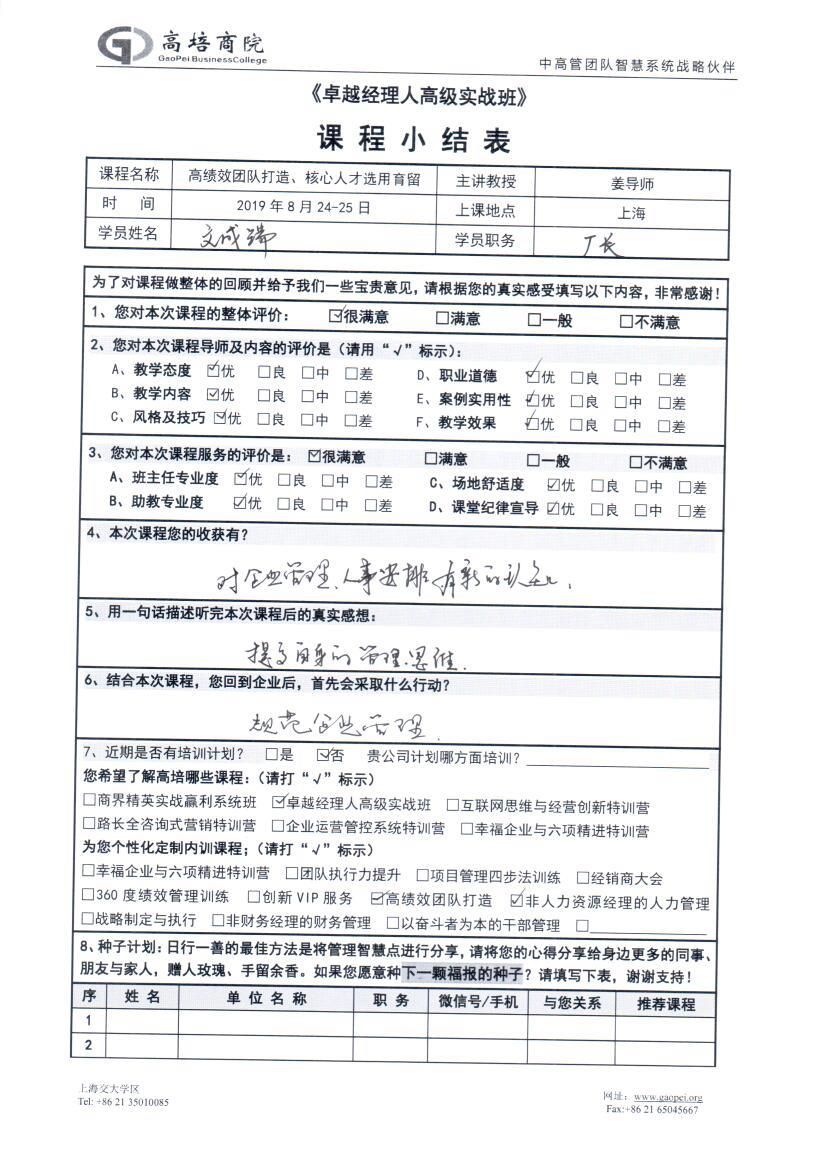 高培商院
GaoPei BusinessCollege
中高管团队智慧系统战略伙伴
《卓越经理人高级实战班》
课程小结表
课程名称 高绩效团队打造、核心人才选用育留 主讲教授 姜导师
时 间 2019 年 8 月 24-25 日 上课地点 上海
学员姓名 文成瑞 学员职务 厂长
为了对课程做整体的回顾并给予我们一些宝贵意见，请根据您的真实感受填写以下内容，非常感谢！
1、您对本次课程的整体评价： ☑很满意 □满意 □一般 □不满意
2、您对本次课程导师及内容的评价是（请用“√”标示）：
A、教学态度 ☑优 □良 □中 □差 D、职业道德 ☑优 □良 □中 □差
B、教学内容 ☑优 □良 □中 □差 E、案例实用性 ☑优 □良 □中 □差
C、风格及技巧 ☑优 □良 □中 □差 F、教学效果 ☑优 □良 □中 □差
3、您对本次课程服务的评价是： ☑很满意 □满意 □一般 □不满意
A、班主任专业度 ☑优 □良 □中 □差 C、场地舒适度 ☑优 □良 □中 □差
B、助教专业度 ☑优 □良 □中 □差 D、课堂纪律宣导 ☑优 □良 □中 □差
4、本次课程您的收获有？
对企业管理、人事安排有新的认知.
5、用一句话描述听完本次课程后的真实感想：
提高自身的管理思维.
6、结合本次课程，您回到企业后，首先会采取什么行动？
规范企业管理.
7、近期是否有培训计划？ □是 ☑否 贵公司计划哪方面培训？
您希望了解高培哪些课程：（请打“√”标示）
□商界精英实战赢利系统班 ☑卓越经理人高级实战班 □互联网思维与经营创新特训营
□路长全咨询式营销特训营 □企业运营管控系统特训营 □幸福企业与六项精进特训营
为您个性化定制内训课程；（请打“√”标示）
□幸福企业与六项精进特训营 □团队执行力提升 □项目管理四步法训练 □经销商大会
□360 度绩效管理训练 □创新 VIP 服务 ☑高绩效团队打造 ☑非人力资源经理的人力管理
□战略制定与执行 □非财务经理的财务管理 □以奋斗者为本的干部管理 □
8、种子计划：日行一善的最佳方法是将管理智慧点进行分享，请将您的心得分享给身边更多的同事、
朋友与家人，赠人玫瑰、手留余香。如果您愿意种下一颗福报的种子？请填写下表，谢谢支持！
序 姓 名 单 位 名 称 职 务 微信号/手机 与您关系 推荐课程
1
2
上海交大学区
Tel: +86 21 35010085
网址：www.gaopei.org
Fax:+86 21 65045667